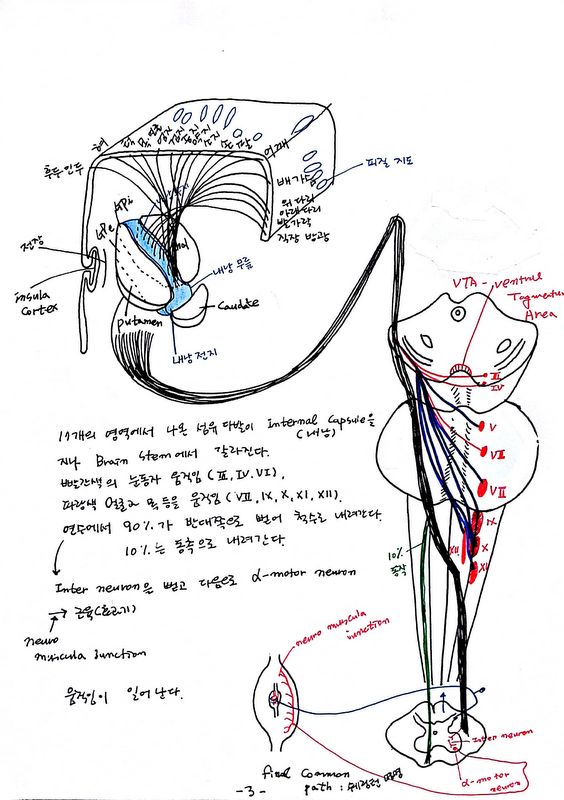 혀
어깨
후두 인두
피질 지도
배 가슴
윗 다리
아래 다리
발가락
직장 방광
GPi
GPe
전장
insula
cortex
putamen
caudate
내낭 무릎
내낭 전지
VTA - ventral
Tegmentum
Area
III
IV
V
VII
IX
XII
X
XI
10%
동측
17개의 영역에서 나온 섬유 다발이 Internal Capsule을
(내낭)
지나 Brain stem에서 갈라진다.
빨간색의 눈동자 움직임 (III, IV. VI),
파랑색 얼굴과 목등을 움직임 (VII, IX, X, XI, XII).
연수에서 90%가 반대쪽으로 뻗어 척수로 내려간다.
10%는 동측으로 내려간다.
Inter neuron을 뻗고 다음으로 α-motor neuron
→ 근육(효과기)
neuro
muscula Junction
움직임이 일어난다.
neuro muscula
junction
Inter neuron
α-motor
neuron
final common
path : 쉐링턴 명명
-3-